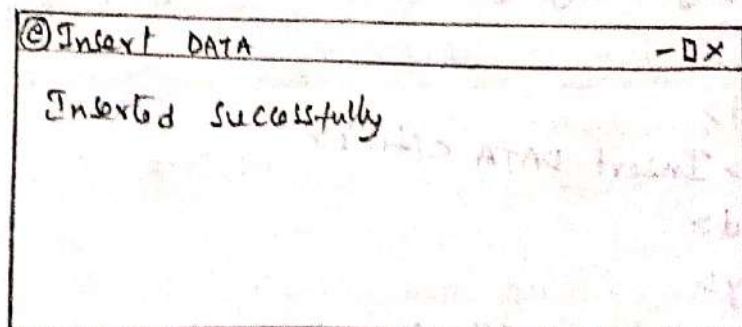 ⓔ Insert DATA - □ ×
Inserted successfully